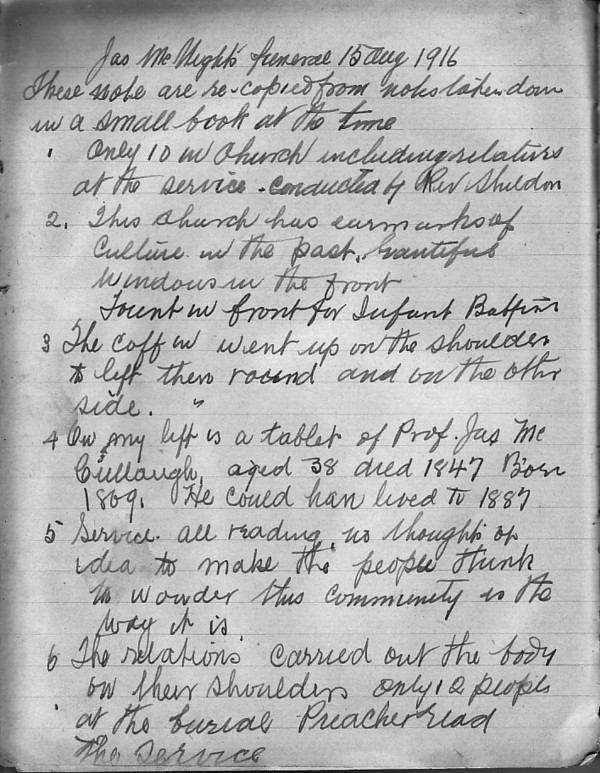 Jas McNight's funeral 15 Aug 1916
These note are re-copied from notes taken down
in a small book at the time
1 Only 10 in Church including relatives
at the service - conducted by Rev Sheldon
2. This church has earmarks of
Culture in the past, beautiful
windows in the front
Fount in front for Infant Baptism
3 The coffin went up on the shoulder
to left then round and on the other
side. "
4 On my left is a tablet of Prof. Jas Mc
Cullaugh, aged 38 died 1847 Born
1809. He could han lived to 1887
5 Service all reading no thought or
idea to make the people think
to wonder this community is the
way it is.
6 The relations carried out the body
on their shoulders only 12 people
at the burial Preacher read
the service